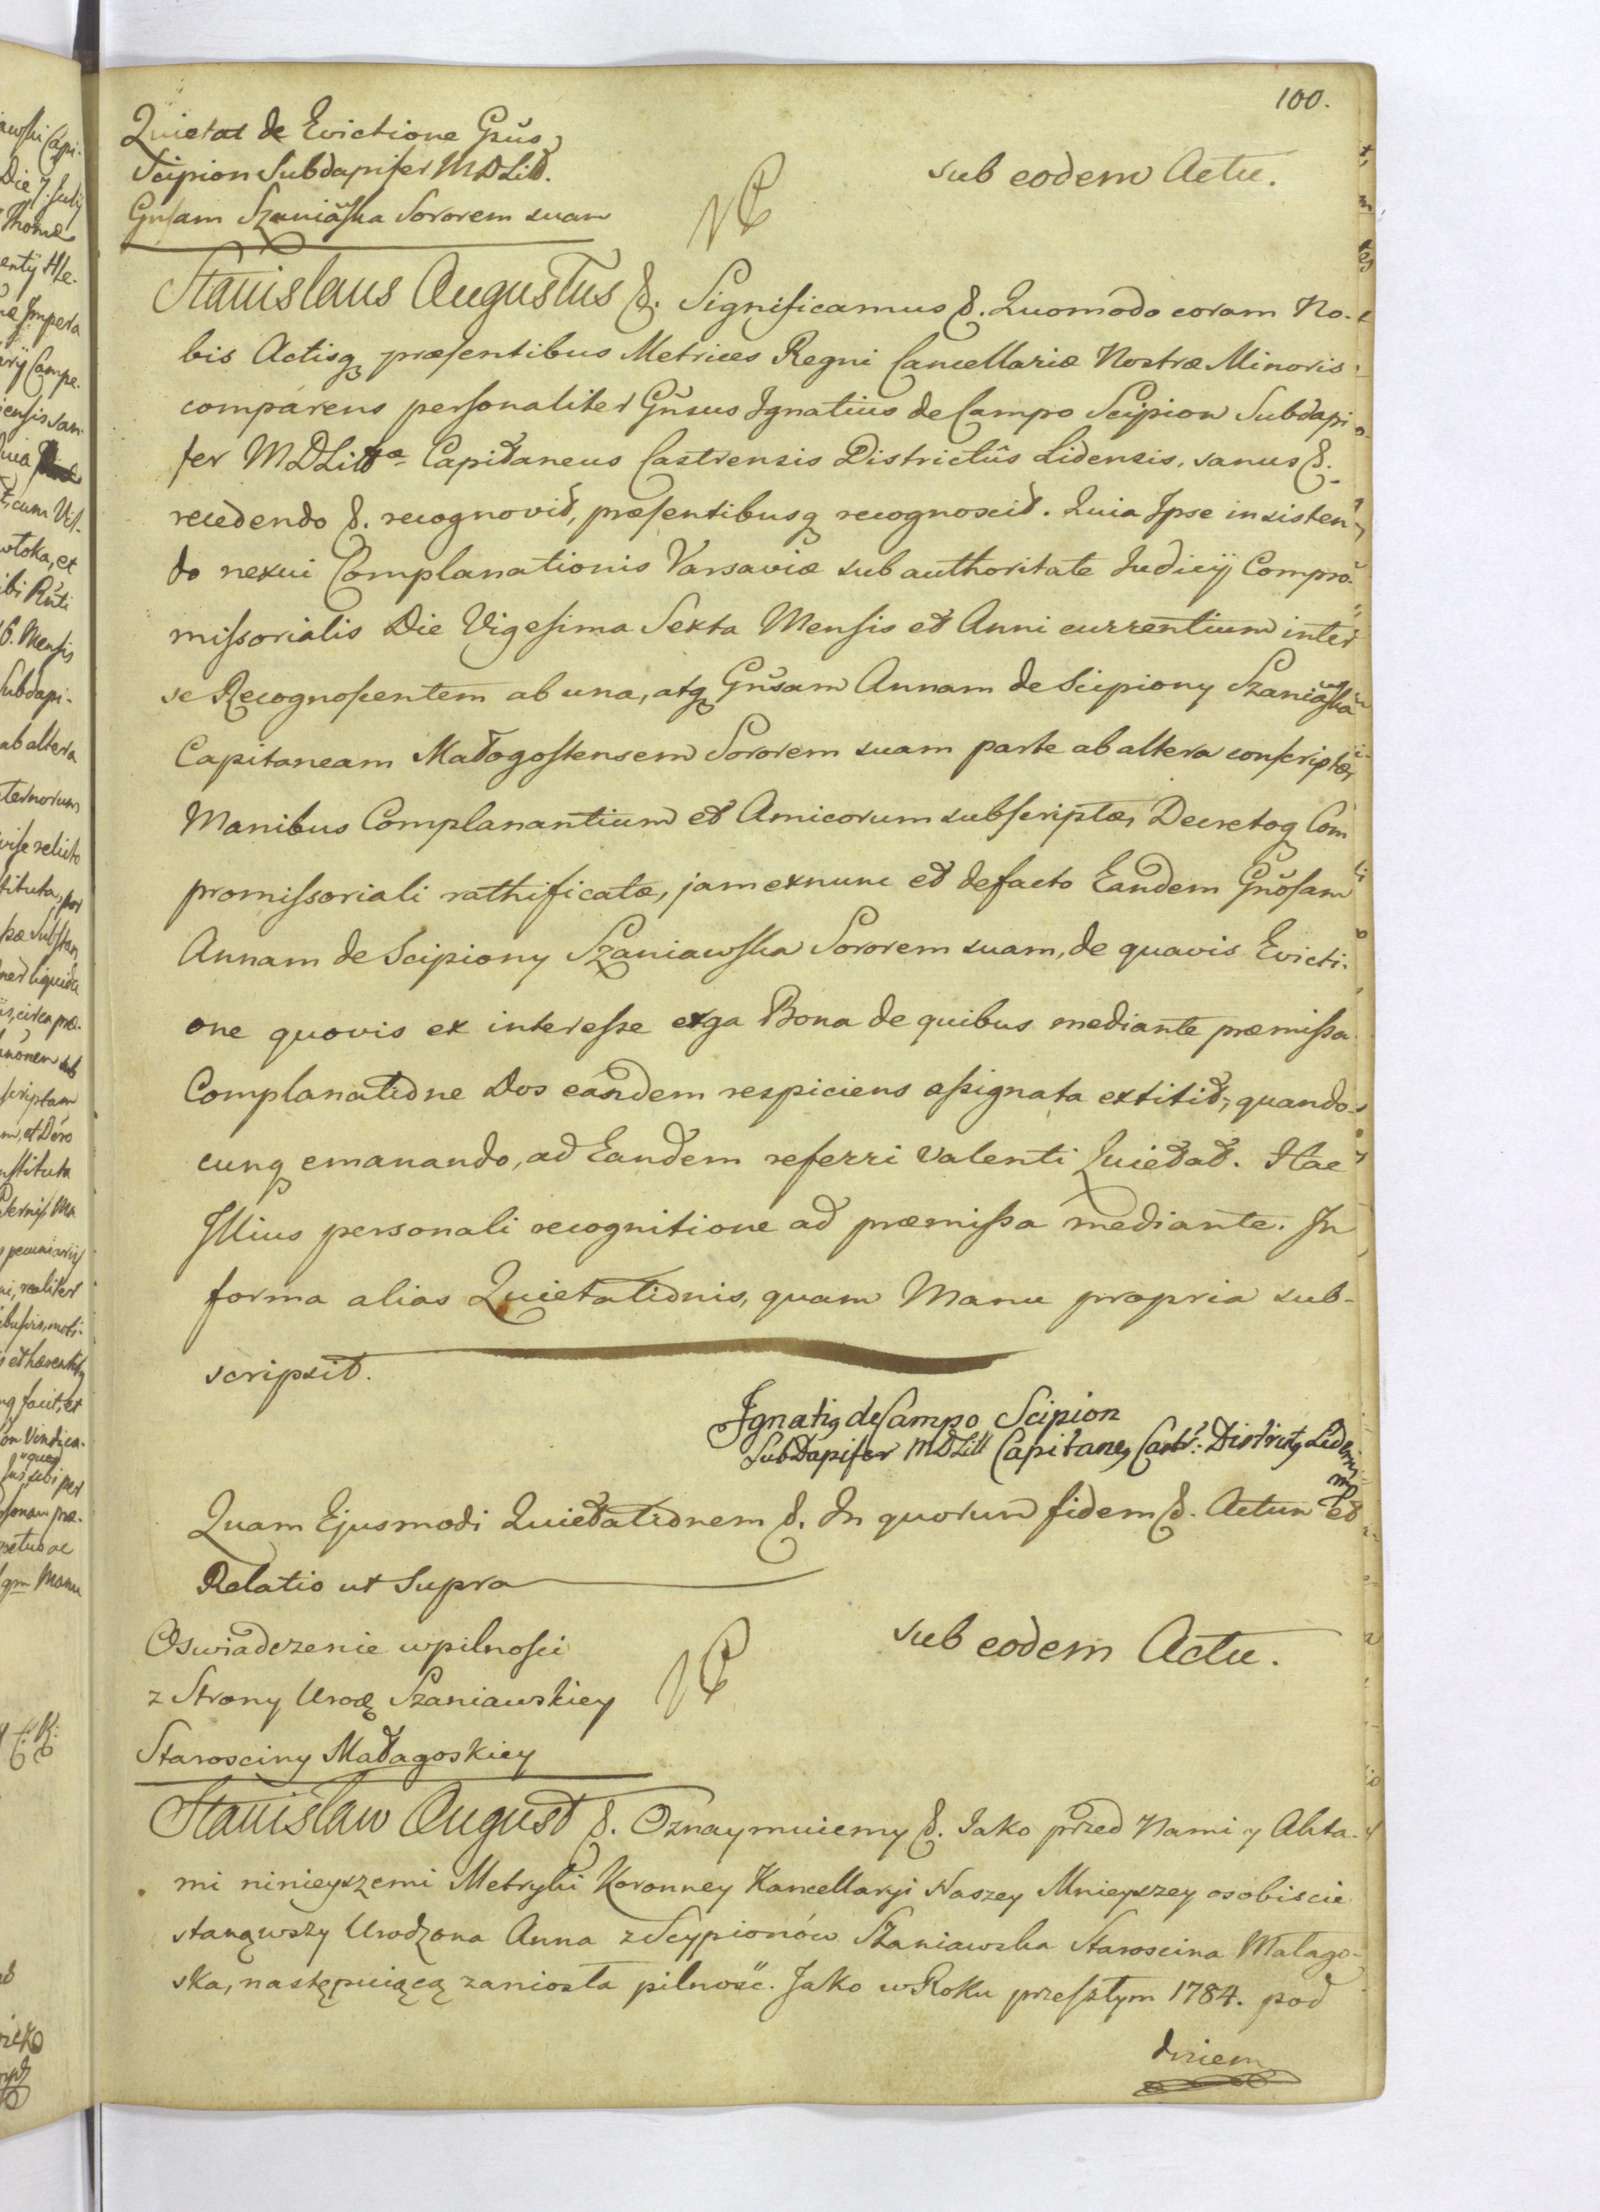 100.
Quietat de Evictione Gnus
Scipion Subdapifer MDLitt.
Gnsam Szaniaska Sororem suam
sub eodem Actu.
Stanislaus Augustus &. Significamus &. Quomodo coram No-
bis Actisq præsentibus Metrices Regni Cancellariæ Nostræ Minoris
comparens personaliter Gnsus Ignatius de Campo Scipion Subdapi
fer MDLittæ Capitaneus Castrensis Districtûs Lidensis, sanus &.
recedendo &. recognovit, præsentibusq recognoscit. Quia Ipse insisten-
do nexui Complanationis Varsaviæ sub authoritate Judicij Compro-
missorialis Die Vigesima Sexta Mensis et Anni currentium inter
se Recognoscentem ab una, atq Gnsam Annam de Scipiony Szaniaska
Capitaneam Małogostensem Sororem suam parte ab altera conscriptæ,
Manibus Complanantium et Amicorum subscriptæ, Decretoq Com
promissoriali rathificatæ, jam exnunc et defacto Eandem Gnosam
Annam de Scipiony Szaniawska Sororem suam, de quavis Evicti-
one quovis ex interesse erga Bona de quibus mediante præmissa
Complanatione Dos eandem respiciens assignata extitit, quando-
cunq emanando, ad Eandem referri valenti Quietat. Hac
Illius personali recognitione ad præmissa mediante. In
forma alias Quietationis, quam Manu propria sub-
scripsit.
Ignatig de Campo Scipion
SubDapifer MDLitt Capitaneg Castr: Districtg Lidensis
mp
Quam Ejusmodi Quietationem &. In quorum fidem &. Actum et
Relatio ut supra
Oswiadczenie w pilnosci
z Strony Uroę Szaniawskiey
Starosciny Małagoskiey
sub eodem Actu.
Stanisław August &. Oznaymuiemy &. Jako przed Nami y Akta-
mi ninieyszemi Metryki Koronney Kancellaryi Naszey Mnieyszey osobiscie
stanąwszy Urodzona Anna z Scypionów Szaniawska Staroscina Malago-
ska, następuiącą zaniosła pilność. Jako w Roku przeszłym 1784. pod
dniem